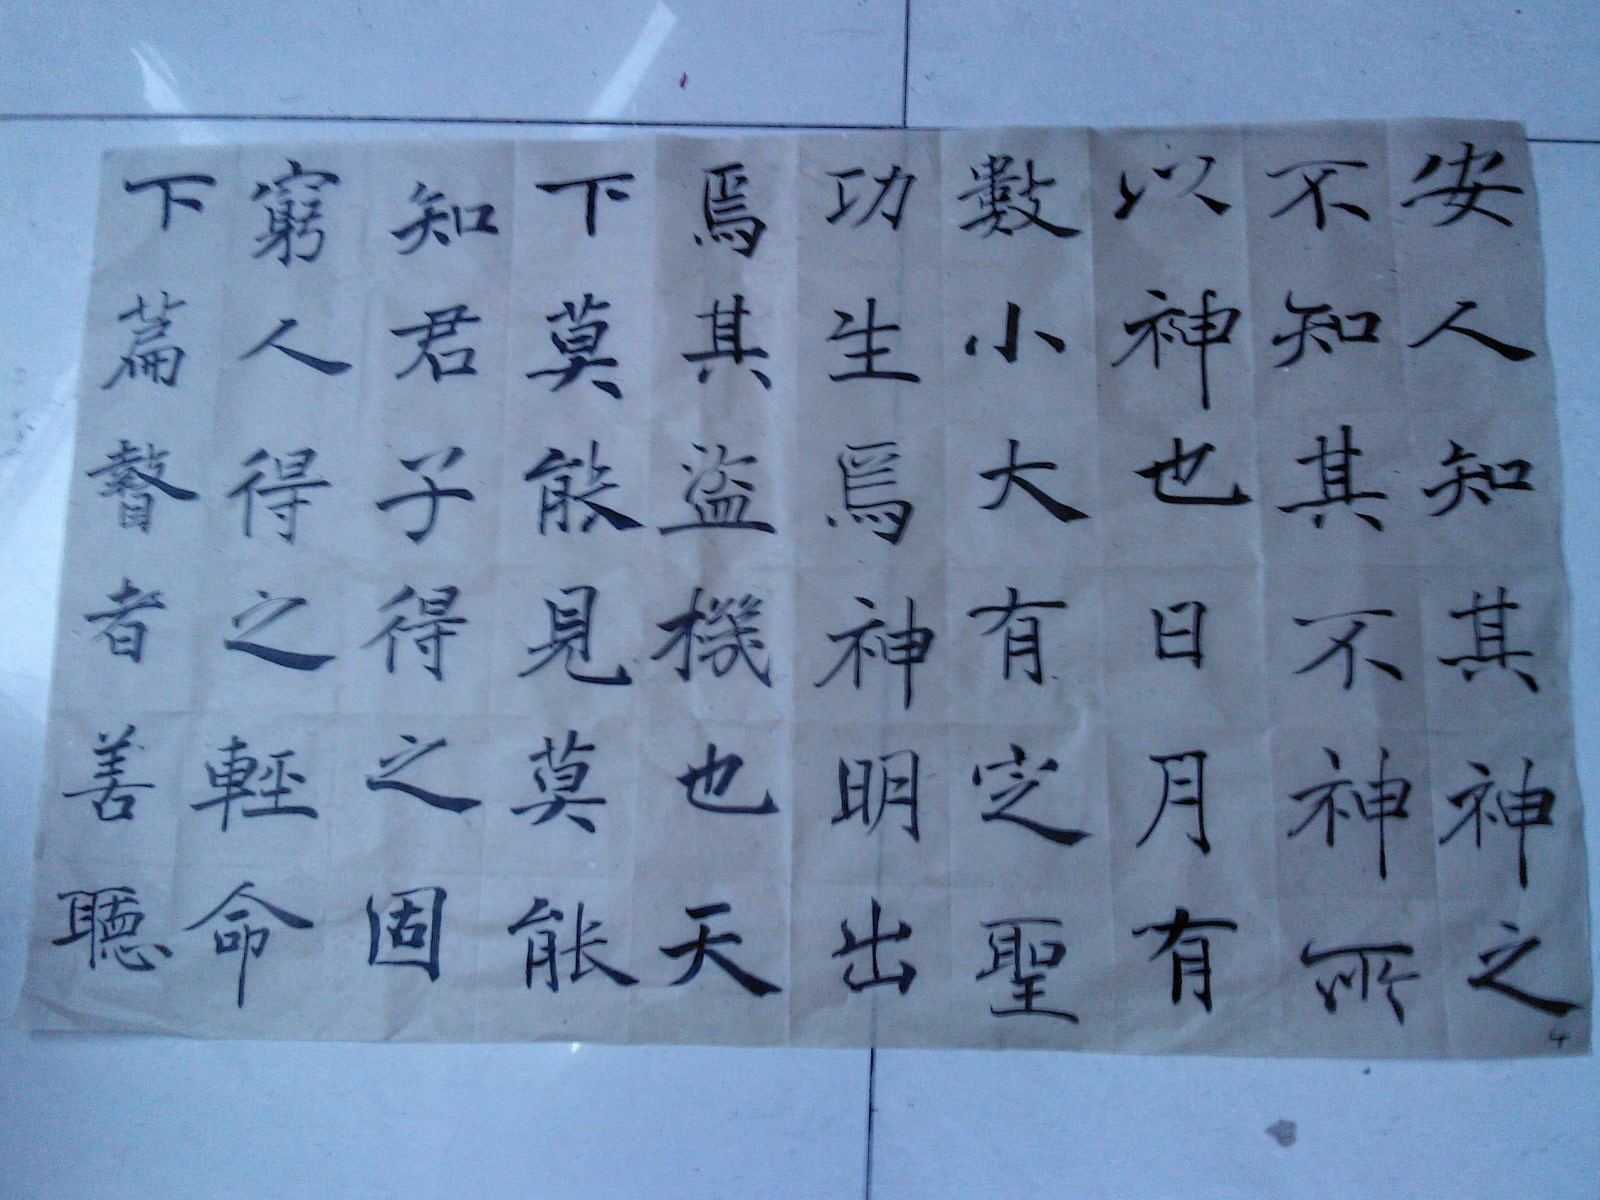 安人知其神之
不知其不神所
以神也日月有
數小大有定聖
功生焉神明出
焉其盜機也天
下莫能見莫能
知君子得之固
窮人得之輕命
下篇瞽者善聽
4